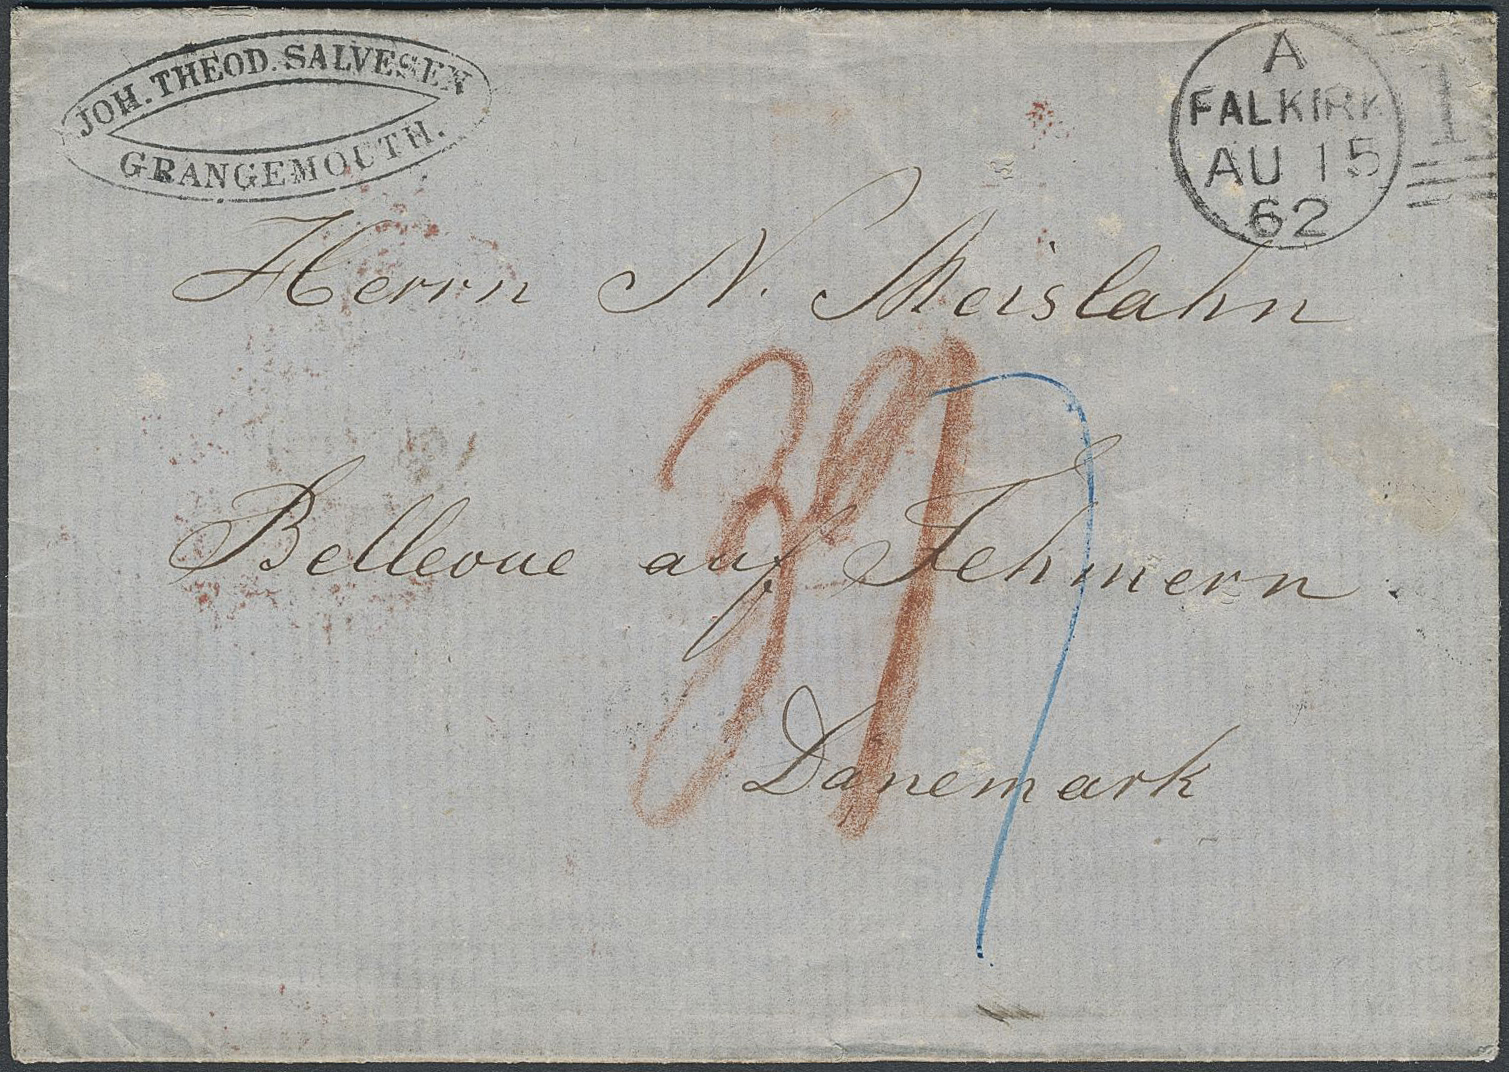 JOH. THEOD. SALVESEN
GRANGEMOUTH.
A
FALKIRK
AU 15
62
Herrn N. Meislahn
Bellevue auf Fehmern
Dänemark